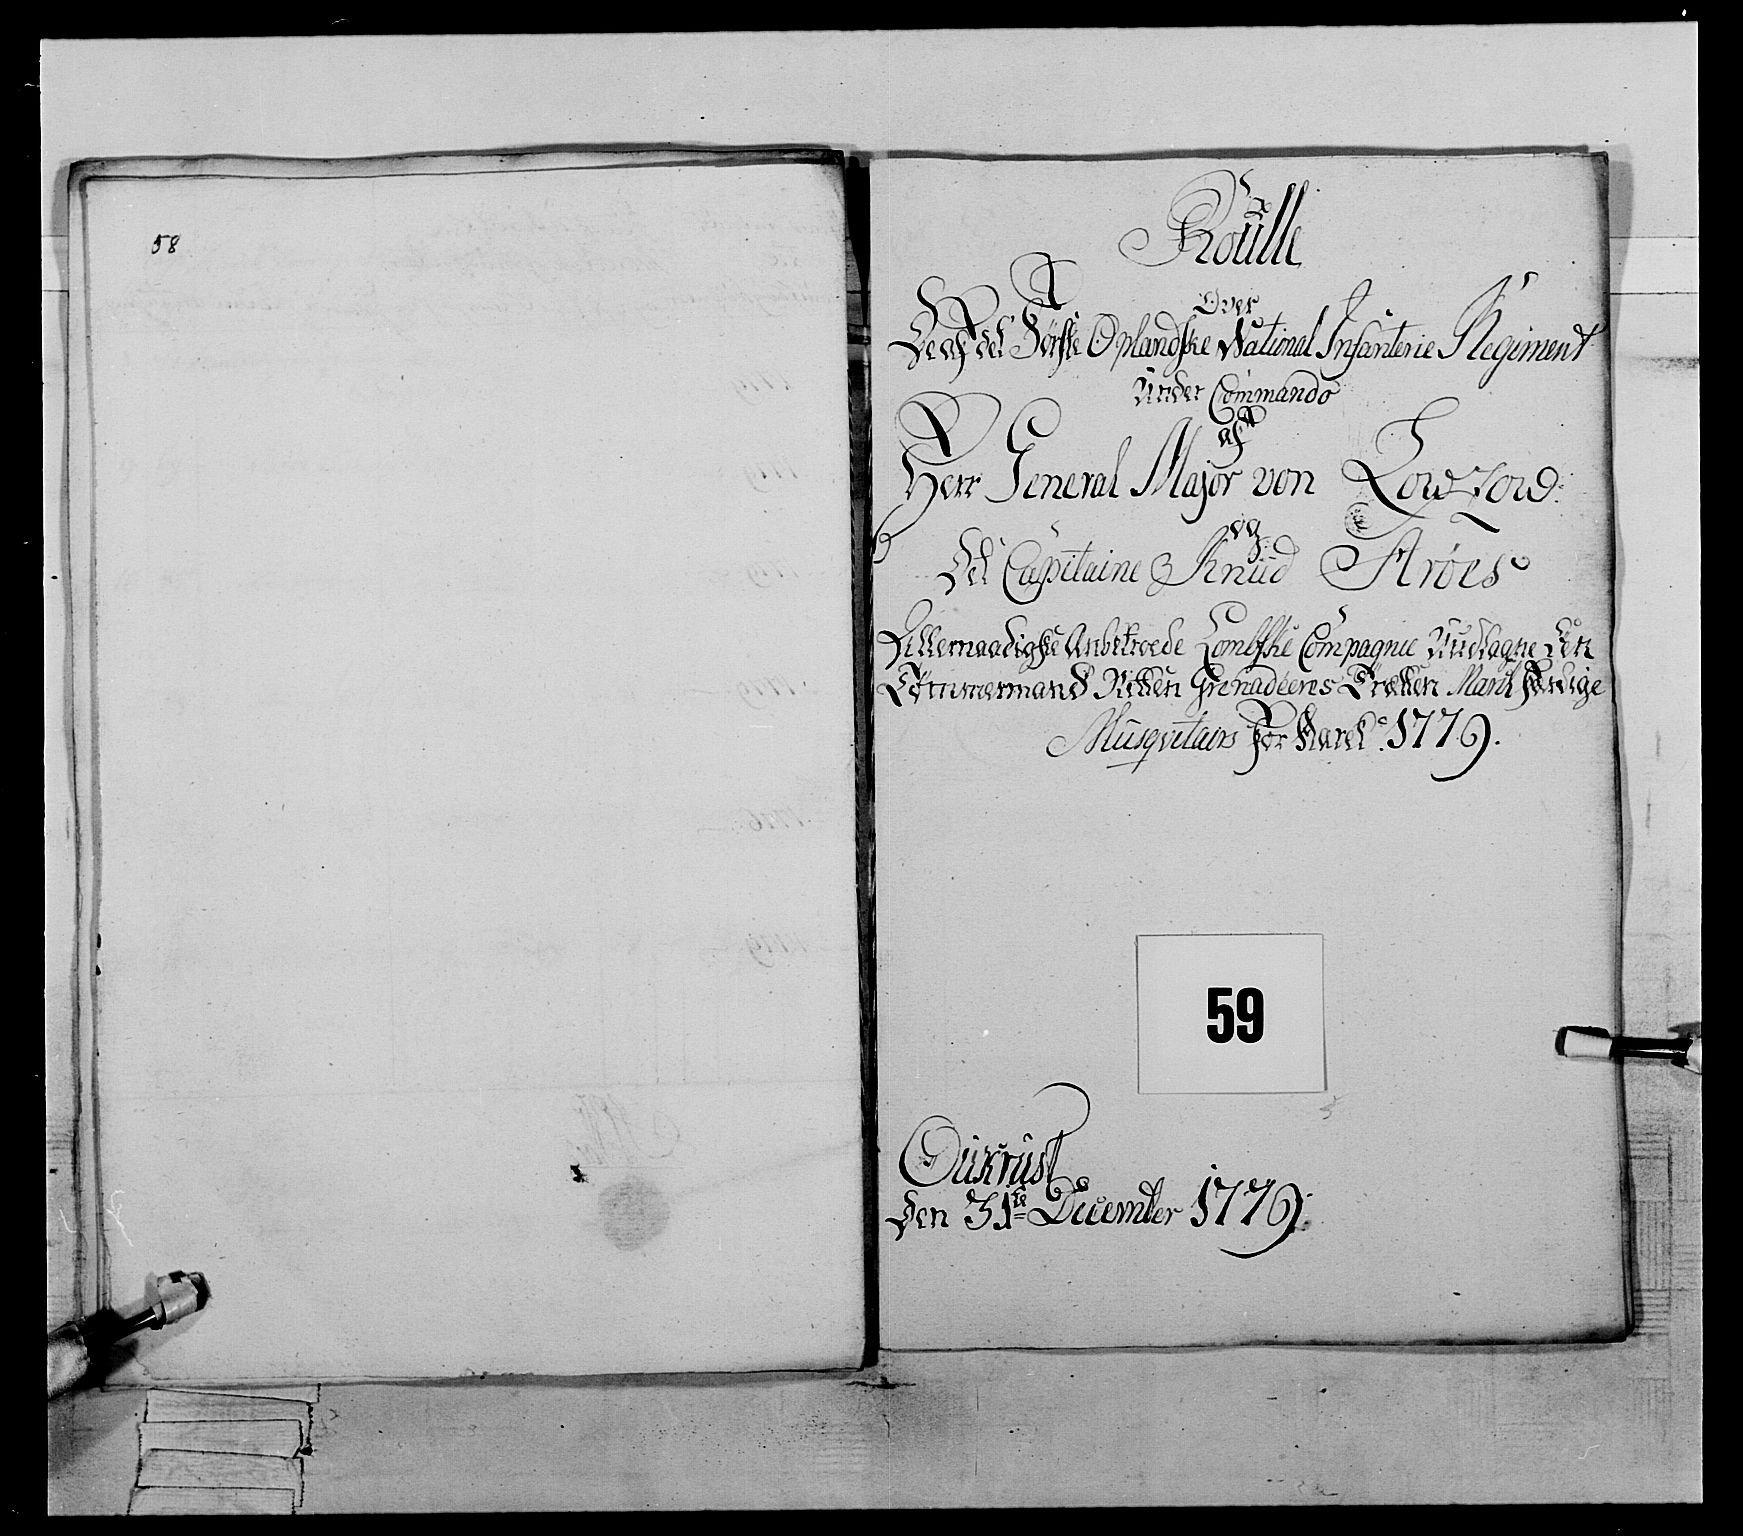 58
Roülle
Over
De af det Førſte Oplandſke National Infanterie Regiment
Under Commando
af
Herr General Major von Lowzow
og
Det Capitaine Knüd Strøes
Allernaadigſte Anbetroede Lomſke Compagnie Uudtagne
Tømmermand Grenadeeres Mand
Musqvitairs for Aaret 1779.
59
Qükrüst
Den 31te December 1779.